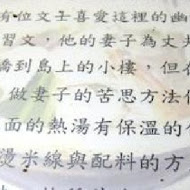 有位文士喜愛這裡的幽
習文,他的妻子為丈夫
橋到島上的小樓,但在
做妻子的苦思方法化
面的熱湯有保溫的
燙米線與配料的方